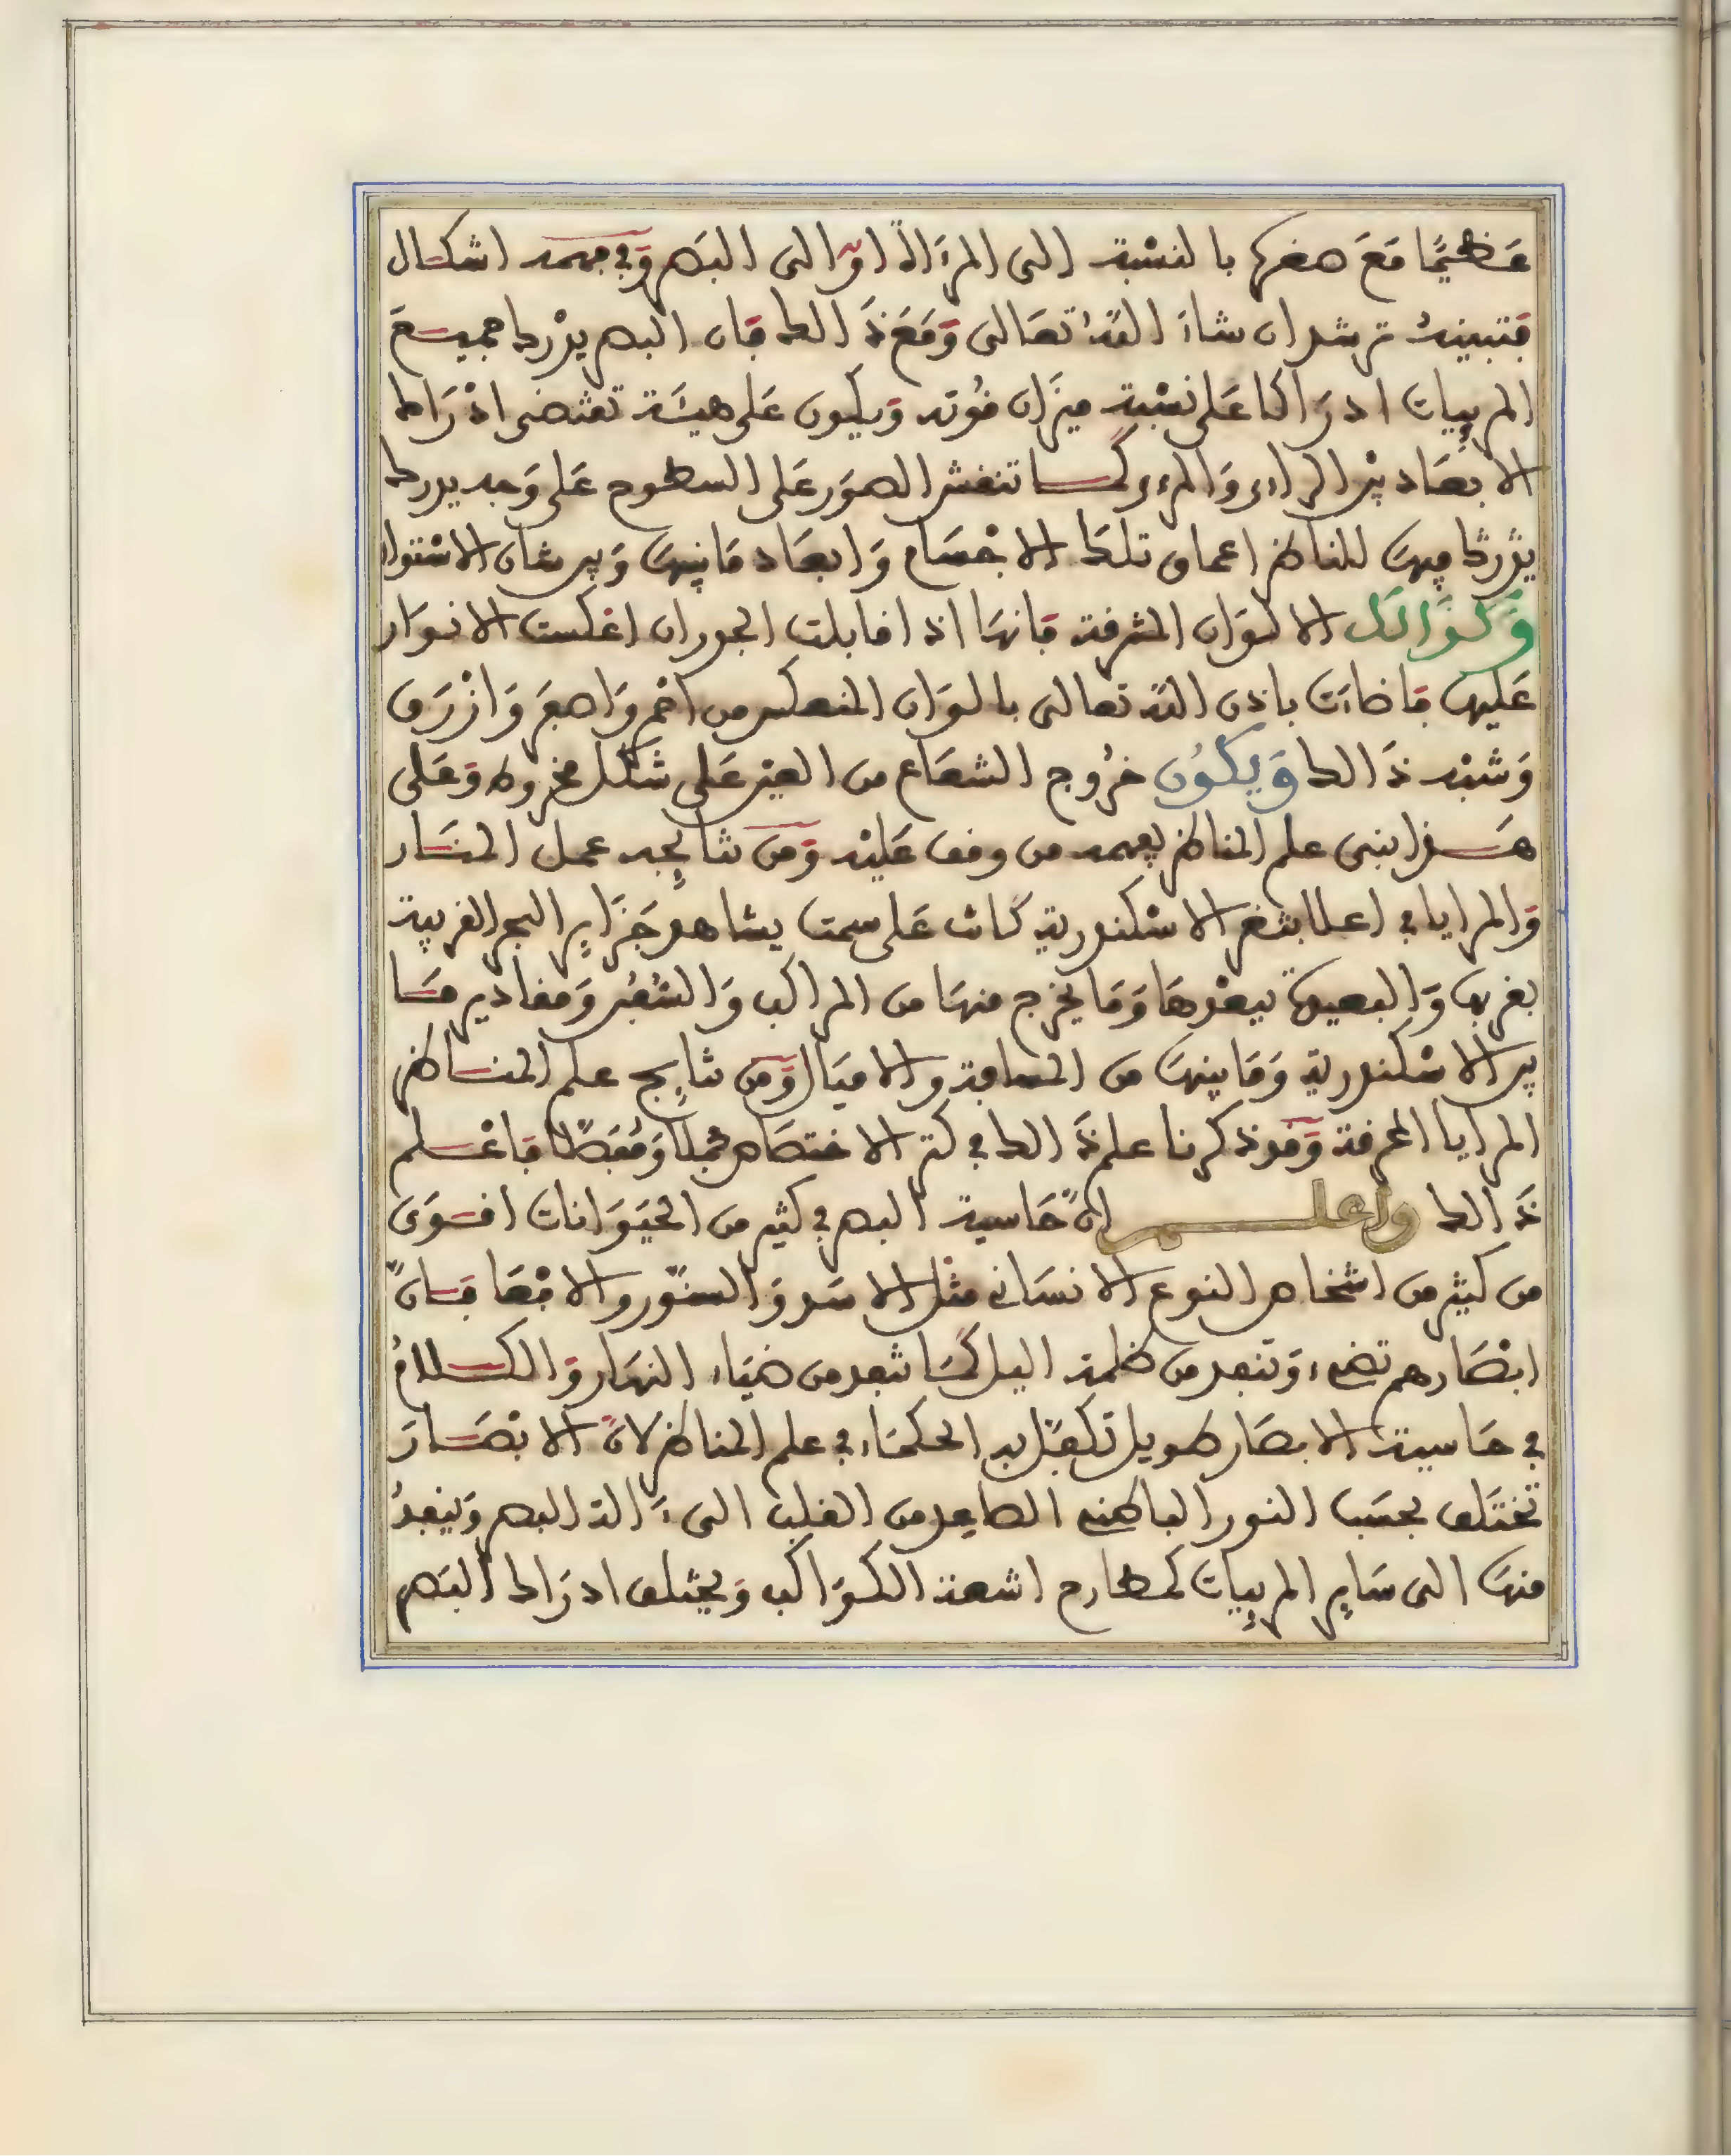 عَظيمًا مَعَ صغرها بالنسْبة إلى المرَءاة أو إلى البَصر وَفي فهمه اشكال
فتبينهُ ترشد ان شاءَ اللهُ تعَالى وَمَعَ ذَالك فَان البصر يدْرك جميـع
المرءِيات ادرَاكا عَلى نسْبة ميزَان قُوته وَيكون عَلى هيئَة تقتضى ادْرَاك
الابعَاد بيْن الراءى وَالمرءى كمـا تنقش الصوَر عَلى السطوح عَلى وَجه يدرك
يدْرك فيهَا للناظر اعماق تلك الاجْسَام وَابعَاد مَا بينهَا وَبين شان الاسْتواء
وَكذَالك الالوَان المشرقة فَانهَا اذا قابلت الجدران انعْكست الانوَار
عَليهَا فَاضاءَت باذن الله تعالى بالوَان المنعكس من احْمر وَاصفَر وَازْرَق
وَشبْه ذَالك وَيكُون خرُوج الشعَاع من العين عَلى شَكل مخروط وَعَلى
هـذا انبنى علم المناظر يفهمه من وقف عَليْه وَمن نتائِجه عمل المنـار
وَالمرايا في اعلا بثغر الاسْكندرية كانت عَلى سمت يشاهد جَزَائِر البحر الغربية
بغربها وَالبعيدة ببعْدهَا وَمَا يخرج منهَا من المراكب وَالسُّفُن وَمقادير مَـا
بين الاسْكندرية وَمَا بينهَا من المسافة والاميَال وَمن نتائِج علم المنـاظر
المرايا المحرقة وَقد ذكرنا علم ذَالك في كتر الاختصَاص مجملًا وَمُفَصَّلًا فَاعْـلم
ذَالك واعلـم انَّ حَاسية البصر في كثير من الحيَوَانات اقـوَى
من كثير من اشخاص النوع الانسَاني مثل الاسَد وَالسنّور والافْعَا فـانَّ
ابْصَارهم تضيء وَتنفد من ظلمة اليل كمَا تنفد من ضيَاء النهَار وَالكـلامُ
في حَاسية الابصَار طويل تكفَّل به الحكمَاء في علم المناظر لانَّ الابْصَـارَ
تختَلف بحسَب النور الباطني الصاعِد من القلب الى ءَالة البصر وَينفدُ
منهَا الى سَائِر المرءِيات كمطارح اشعة الكوَاكب وَيختلف ادرَاك البَصر